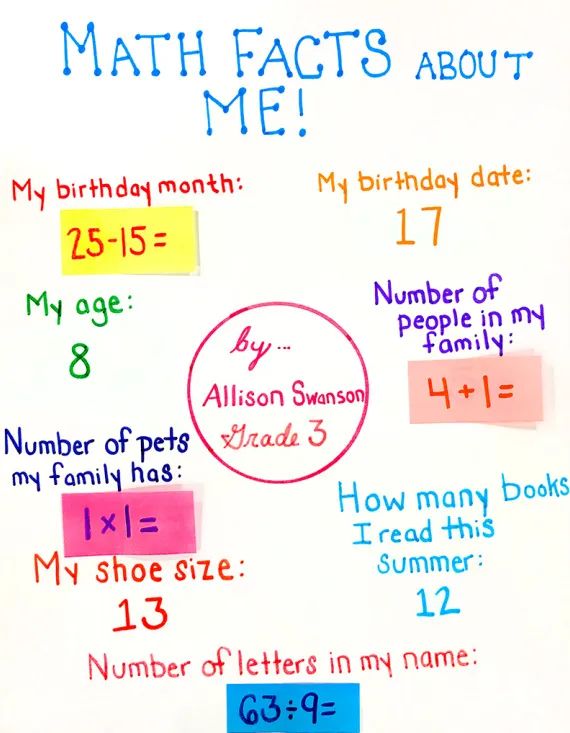 MATH FACTS ABOUT
ME!
My birthday month:
25-15=
My birthday date:
17
My age:
8
Number of
people in my
family:
4+1=
by...
Allison Swanson
Grade 3
Number of pets
my family has:
1×1=
How many books
I read this
summer:
12
My shoe size:
13
Number of letters in my name:
63÷9=